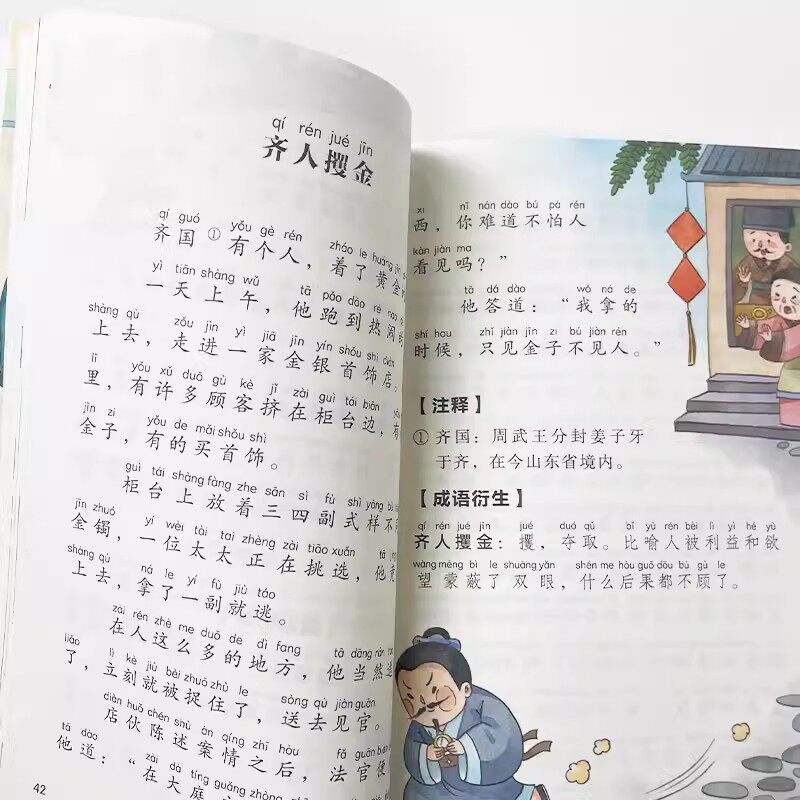 qí rén jué jīn
齐人攫金
qí guó yǒu gè rén zháo le huáng jīn
齐国①有个人，着了黄金
yì tiān shàng wǔ tā pǎo dào rè nao
一天上午，他跑到热闹
shàng qù zǒu jìn yì jiā jīn yín shǒu shì diàn
上去，走进一家金银首饰店。
lǐ yǒu xǔ duō gù kè jǐ zài guì tái biān
里，有许多顾客挤在柜台边，有
jīn zi yǒu de mǎi shǒu shì
金子，有的买首饰。
guì tái shàng fàng zhe sān sì fù shì yàng bù
柜台上放着三四副式样不
jīn zhuó yí wèi tài tai zhèng zài tiāo xuǎn tā
金镯，一位太太正在挑选，他竟
shàng qù ná le yí fù jiù táo
上去，拿了一副就逃。
zài rén zhè me duō de dì fang tā dāng rán
在人这么多的地方，他当然逃
liǎo lì kè jiù bèi zhuō zhù le sòng qù jiàn guān
了，立刻就被捉住了，送去见官。
diàn huǒ chén shù àn qíng zhī hòu fǎ guān biàn
店伙陈述案情之后，法官便
tā dào zài dà tíng guǎng zhòng
他道：“在大庭广
42
xi nǐ nán dào bú pà rén
西，你难道不怕人
kàn jiàn ma
看见吗？”
tā dá dào wǒ ná de
他答道：“我拿的
shí hou zhǐ jiàn jīn zi bú jiàn rén
时候，只见金子不见人。”
【注释】
①齐国：周武王分封姜子牙
于齐，在今山东省境内。
【成语衍生】
qí rén jué jīn jué duó qǔ bǐ yù rén bèi lì yì hé yù
齐人攫金：攫，夺取。比喻人被利益和欲
wàng méng bì le shuāng yǎn shén me hòu guǒ dōu bú gù le
望蒙蔽了双眼，什么后果都不顾了。